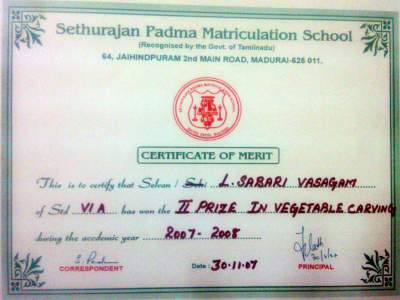 Sethurajan Padma Matriculation School
(Recognised by the Govt. of Tamilnadu)
64, JAIHINDPURAM 2nd MAIN ROAD, MADURAI-625 011.
CERTIFICATE OF MERIT
This is to certify that Selvan / Selvi L. SABARI VASAGAM
of Std VI A has won the II PRIZE IN VEGETABLE CARVING
during the academic year 2007 - 2008
CORRESPONDENT Date : 30.11.07 PRINCIPAL